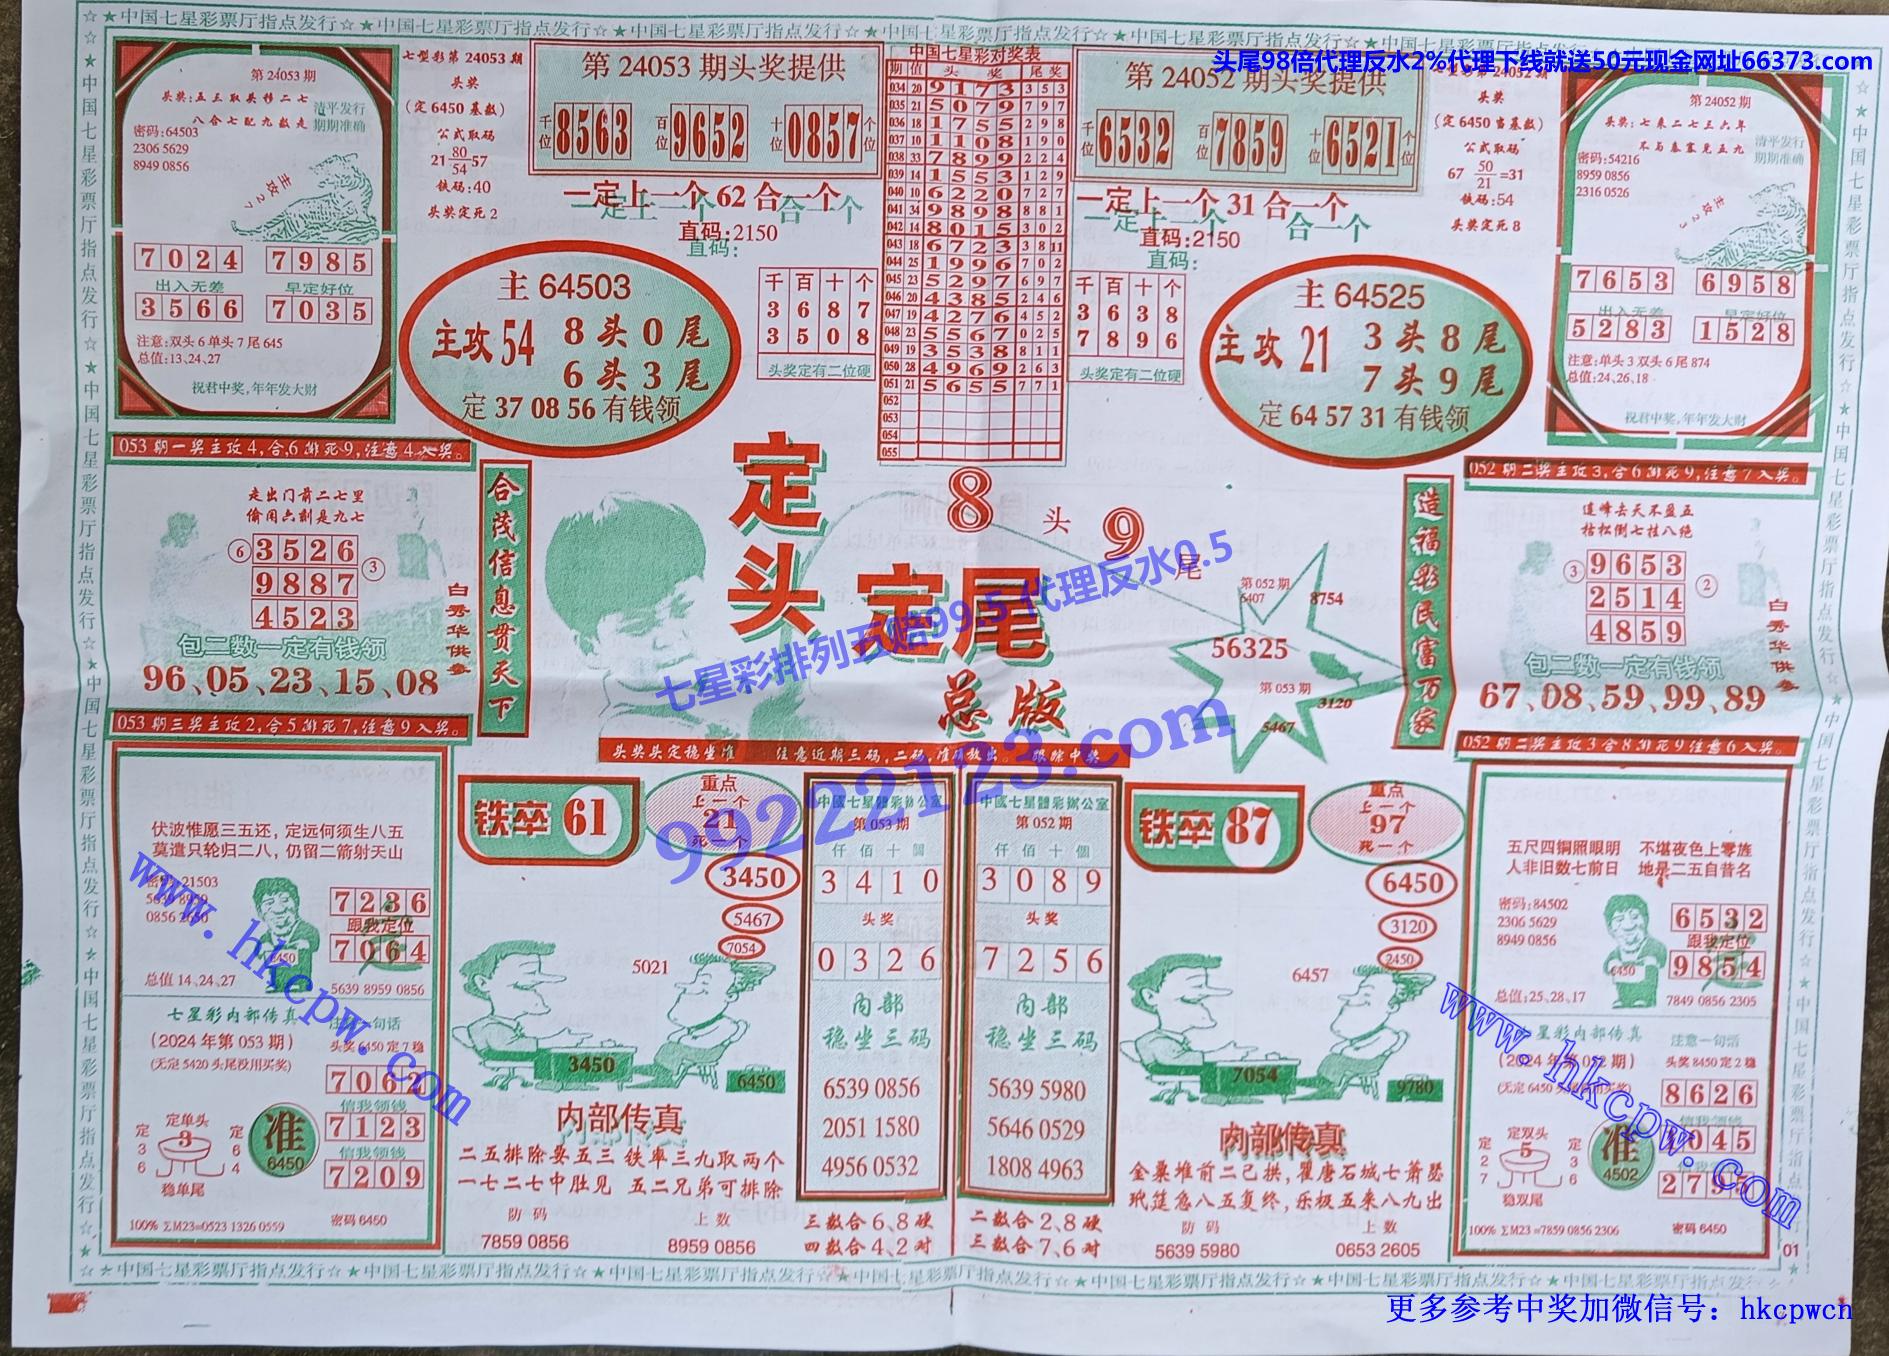 ☆★中国七星彩票厅指点发行☆★中国七星彩票厅指点发行☆★中国七星彩票厅指点发行☆★中国七星彩票厅指点发行
头尾98倍代理反水2%代理下线就送50元现金网址66373.com
第24053期
头奖:五三取头移二七
八合七配九数走
清平发行
期期准确
密码:64503
2306 5629
8949 0856
主攻27
7024 7985
出入无差 早定好位
3566 7035
注意:双头6单头7尾645
总值:13、24、27
祝君中奖,年年发大财
七型彩第24053期
头奖
(定6450基数)
公式取码
21 80/54 57
铁码:40
头奖定死2
第24053期头奖提供
千位 8563 百位 9652 十位 0857 个位
一定上一个62合一个
直码:2150
直码:
主64503
主攻54
8头0尾
6头3尾
定37 08 56有钱领
千百十个
3687
3508
头奖定有二位硬
中国七星彩对奖表
期 值 头奖 尾奖
034 20 9173 353
035 21 5079 797
036 18 1755 298
037 10 1108 190
038 33 7899 224
039 14 1553 129
040 10 6220 727
041 34 9898 881
042 14 8015 302
043 18 6723 3811
044 25 1996 702
045 23 5297 697
046 20 4385 246
047 19 4276 452
048 23 5567 025
049 19 3538 811
050 28 4969 263
051 21 5655 771
052
053
054
055
第24052期头奖提供
千位 6532 百位 7859 十位 6521 个位
一定上一个31合一个
直码:2150
直码:
千百十个
3638
7896
头奖定有二位硬
主64525
主攻21
3头8尾
7头9尾
定64 57 31有钱领
头奖
(定6450当基数)
公式取码
67 50/21 =31
铁码:54
头奖定死8
第24052期
头奖:七来二七三六年
不与秦塞见五九
清平发行
期期准确
密码:54216
8959 0856
2316 0526
主攻23
7653 6958
出入无差 早定好位
5283 1528
注意:单头3双头6尾874
总值:24、26、18
祝君中奖,年年发大财
053期一奖主攻4,合6排死9,注意4入奖。
走出门前二七里
偷闲六刻是九七
⑥ 3526 ③
9887
4523
包二数一定有钱领
96、05、23、15、08
白秀华供参
合茂信息贯天下
053期三奖主攻2,合5排死7,注意9入奖。
定头
定尾
8头9尾
总版
七星彩排列五赔99.5代理反水0.5
99222123.com
头奖头定稳坐准 注意近期三码,二码,准确放出。 跟踪中奖
第052期
6407
8754
56325
第053期
3120
5467
造福彩民富万家
052期二奖主攻3,合6排死9,注意7入奖。
连峰去天不盈五
枯松倒七挂八绝
③ 9653 ②
2514
4859
包二数一定有钱领
67、08、59、99、89
白秀华供参
052期二奖主攻3合8排死9注意6入奖。
伏波惟愿三五还,定远何须生八五
莫遣只轮归二八,仍留二箭射天山
密码:21503
5639 8959
0856 2650
6450
7236
跟我定位
7064
总值14、24、27
5639 8959 0856
七星彩内部传真
(2024年第053期)
(无定5420头尾没用买奖)
注意一句话
头奖6450定7稳
7062
信我领钱
7123
信我领钱
7209
定单头
3
定36
定64
稳单尾
准
6450
100% ΣM23=0523 1326 0559
密码6450
www.hkcpw.com
铁卒61
重点
上一个
21
死一个
3450
5467
7054
5021
3450
6450
内部传真
二五排除要五三 铁率三九取两个
一七二七中肚见 五二兄弟可排除
防码 上数
7859 0856 8959 0856
中國七星體彩辦公室
第053期
仟佰十個
3410
头奖
0326
内部
稳坐三码
6539 0856
2051 1580
4956 0532
三数合6、8硬
四数合4、2对
中國七星體彩辦公室
第052期
仟佰十個
3089
头奖
7256
内部
稳坐三码
5639 5980
5646 0529
1808 4963
二数合2、8硬
三数合7、6对
铁卒87
重点
上一个
97
死一个
6450
3120
2450
6457
7054
9780
内部传真
金粟堆前二己拱,瞿唐石城七萧瑟
玳筵急八五复终,乐极五来八九出
防码 上数
5639 5980 0653 2605
五尺四铜照眼明 不堪夜色上零旌
人非旧数七前日 地是二五自昔名
密码:84502
2306 5629
8949 0856
6450
6532
跟我定位
9854
总值:25、28、17
7849 0856 2305
七星彩内部传真
(2024年第052期)
注意一句话
头奖8450定2稳
8626
2795
定双头
5
定27
定36
稳双尾
准
4502
100% ΣM23=7859 0856 2306
密码6450
www.hkcpw.com
01
☆★中国七星彩票厅指点发行☆★中国七星彩票厅指点发行☆★中国七星彩票厅指点发行☆★中国七星彩票厅指点发行
更多参考中奖加微信号:hkcpwcn